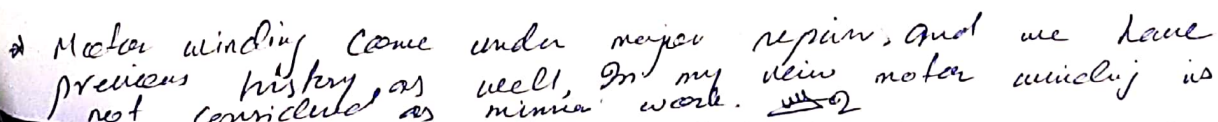 Motor winding come under major repair, and we have
previous history, as well, In my view motor winding is
not considered as minor work.